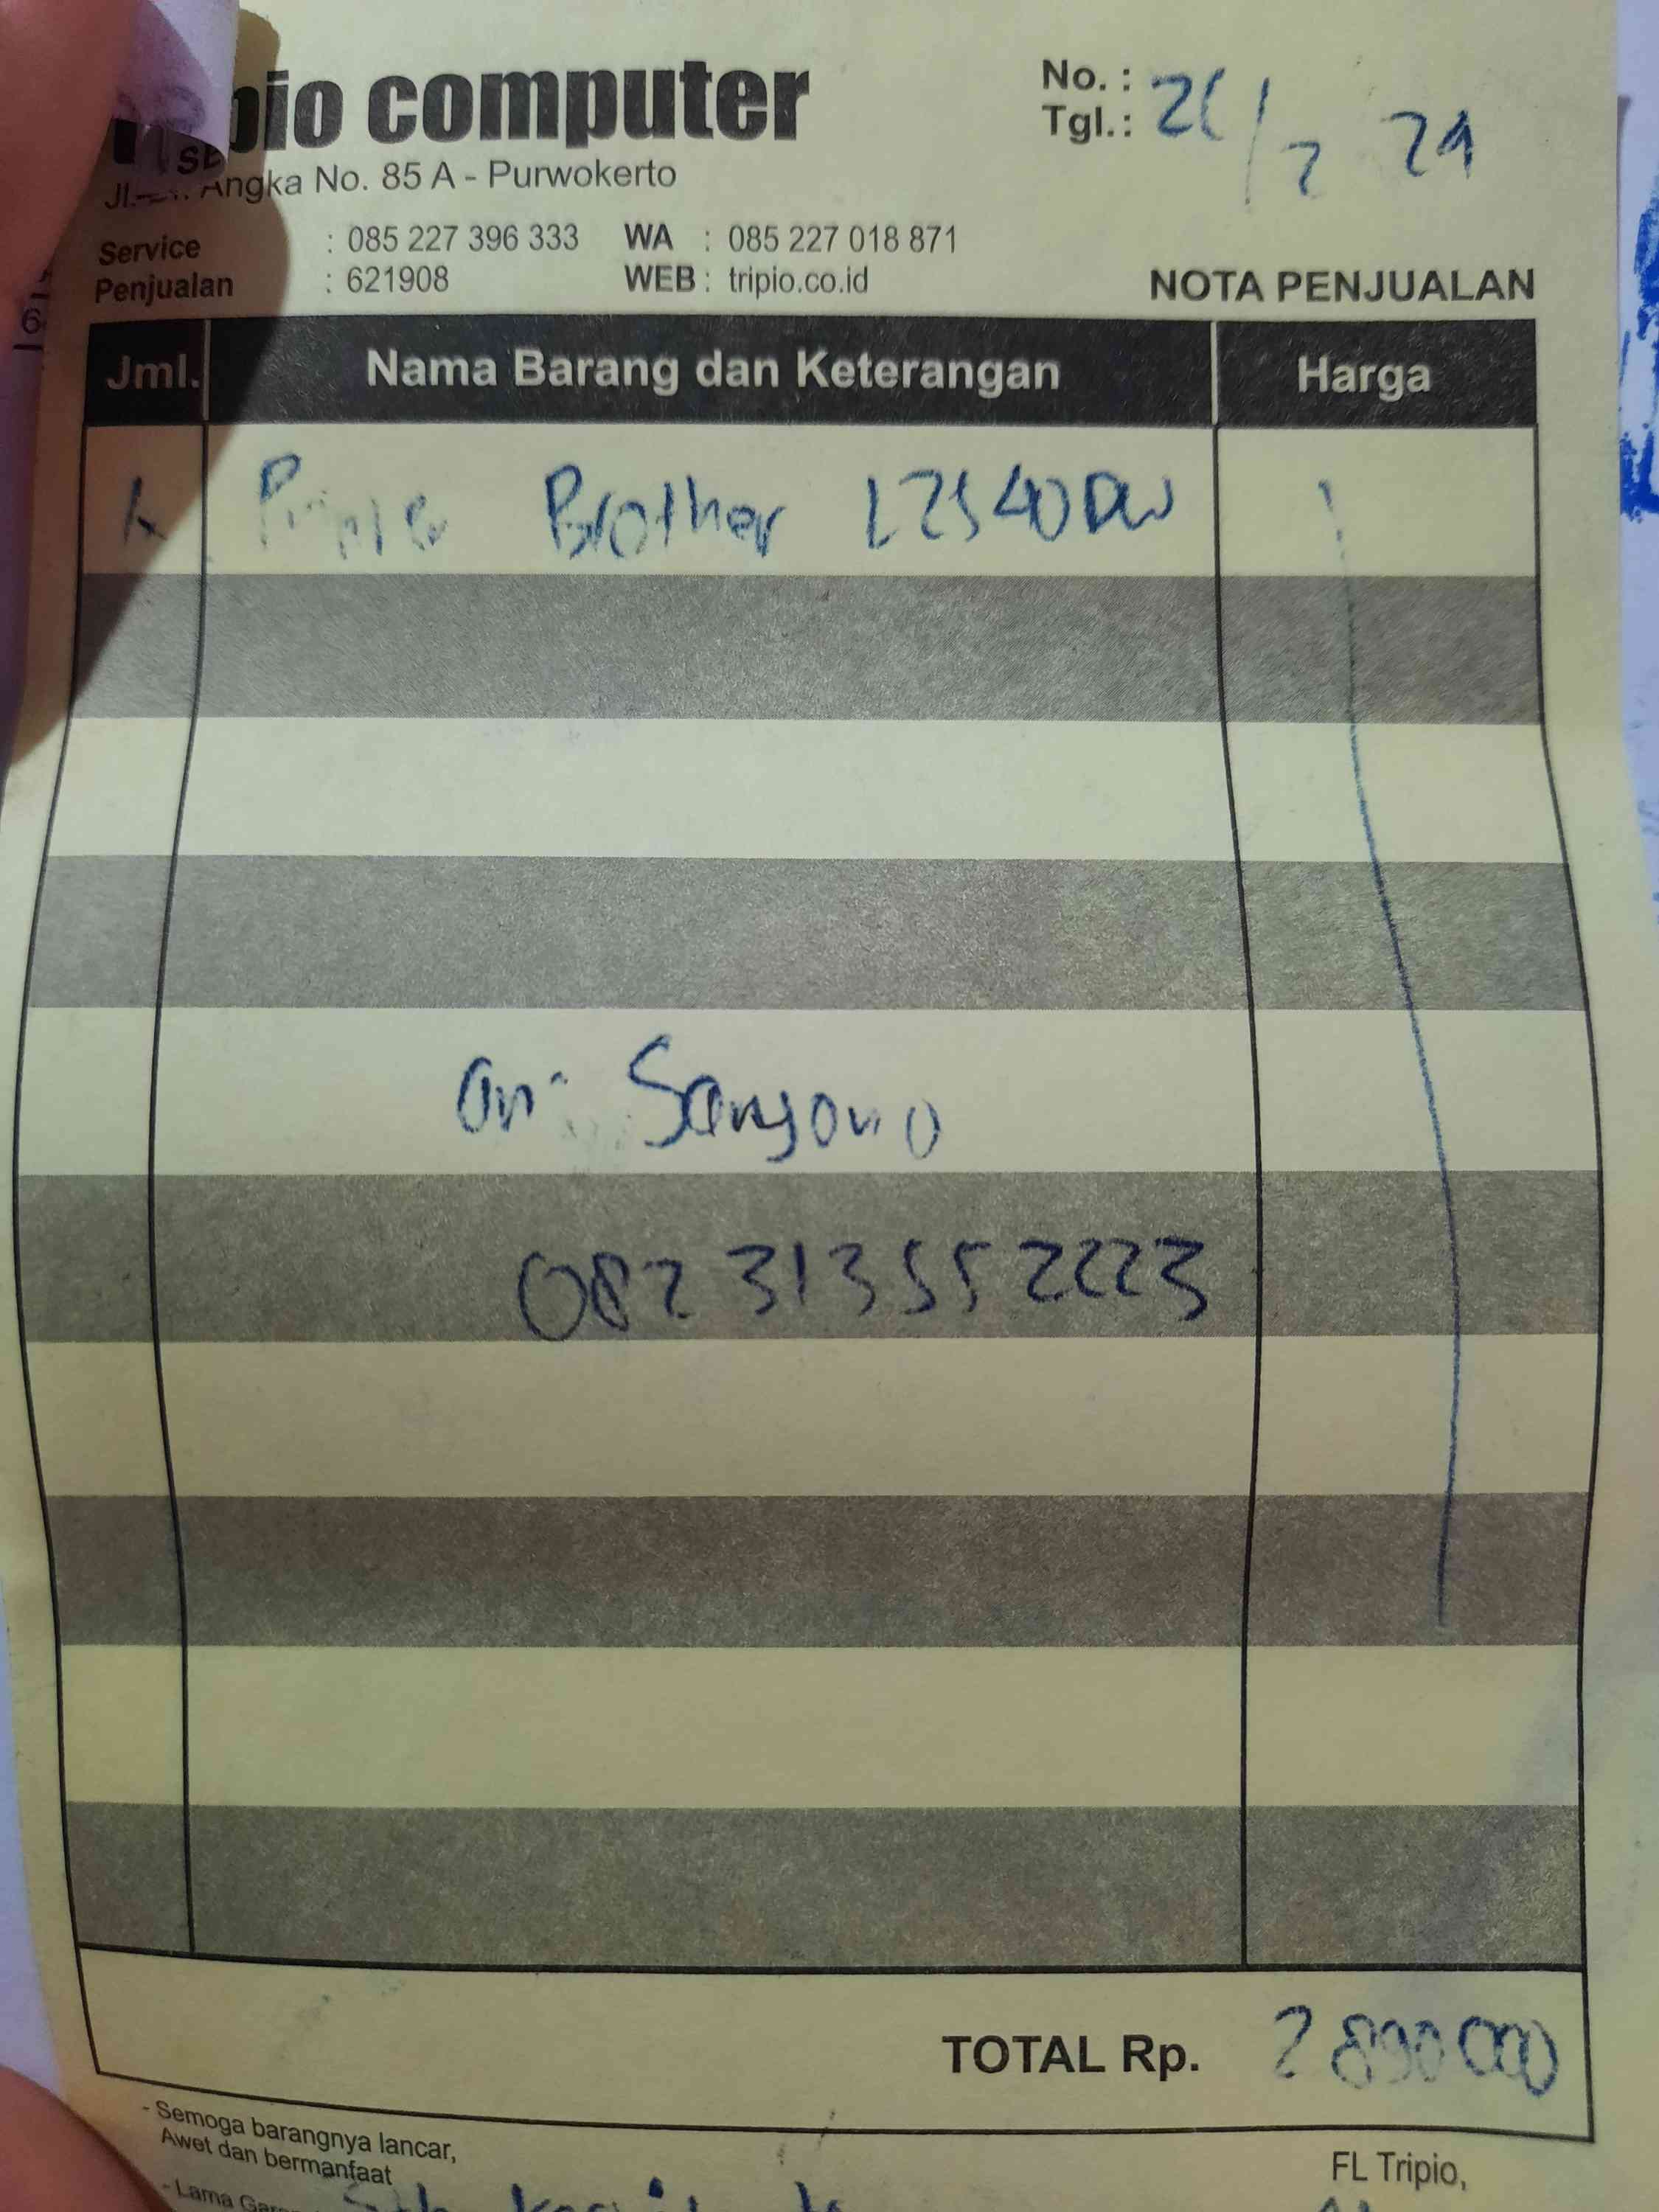 computer
No. :
Tgl. :
Angka No. 85 A - Purwokerto
Service : 085 227 396 333 WA : 085 227 018 871
Penjualan : 621908 WEB : tripio.co.id
NOTA PENJUALAN
Jml. Nama Barang dan Keterangan Harga
Brother L2540DW
an. Sangono
082 313 55 2223
TOTAL Rp. 2890000
- Semoga barangnya lancar,
Awet dan bermanfaat
FL Tripio,
- Lama